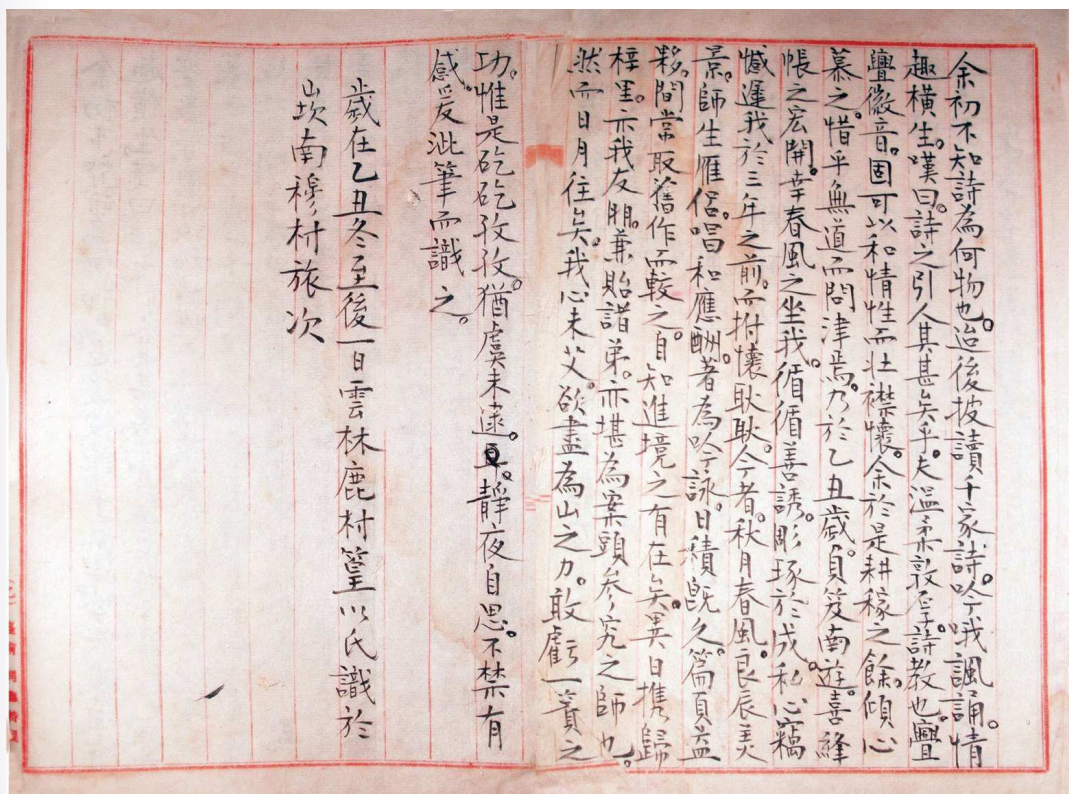 余初不知詩為何物也。迨後披讀千家詩。吟哦諷誦。情
趣橫生。嘆曰。詩之引人其甚矣乎。夫溫柔敦厚。詩教也。興
疊徽音。固可以和情性而壯襟懷。余於是耕稼之餘。傾心
慕之。惜乎無道而問津焉。乃於乙丑歲。負笈南遊。喜絳
帳之宏開。幸春風之坐我。循循善誘。彫琢於成。私心竊
憾遲我於三年之前。而拊懷耿耿。今者。秋月春風。良辰美
景。師生雁侶。唱和應酬。著為吟詠。日積既久。篇頁益
夥。間常取舊作而較之。自知進境之有在矣。異日携歸
梓里。示我友朋。兼貽諸弟。亦堪為案頭參究之師也。
然而日月往矣。我心未艾。欲盡為山之力。敢虧一簣之
功。惟是矻矻孜孜。猶虞未逮。靜夜自思。不禁有
感。爰泚筆而識之。
歲在乙丑冬至後一日雲林鹿村篁以氏識於
崁南穆村旅次